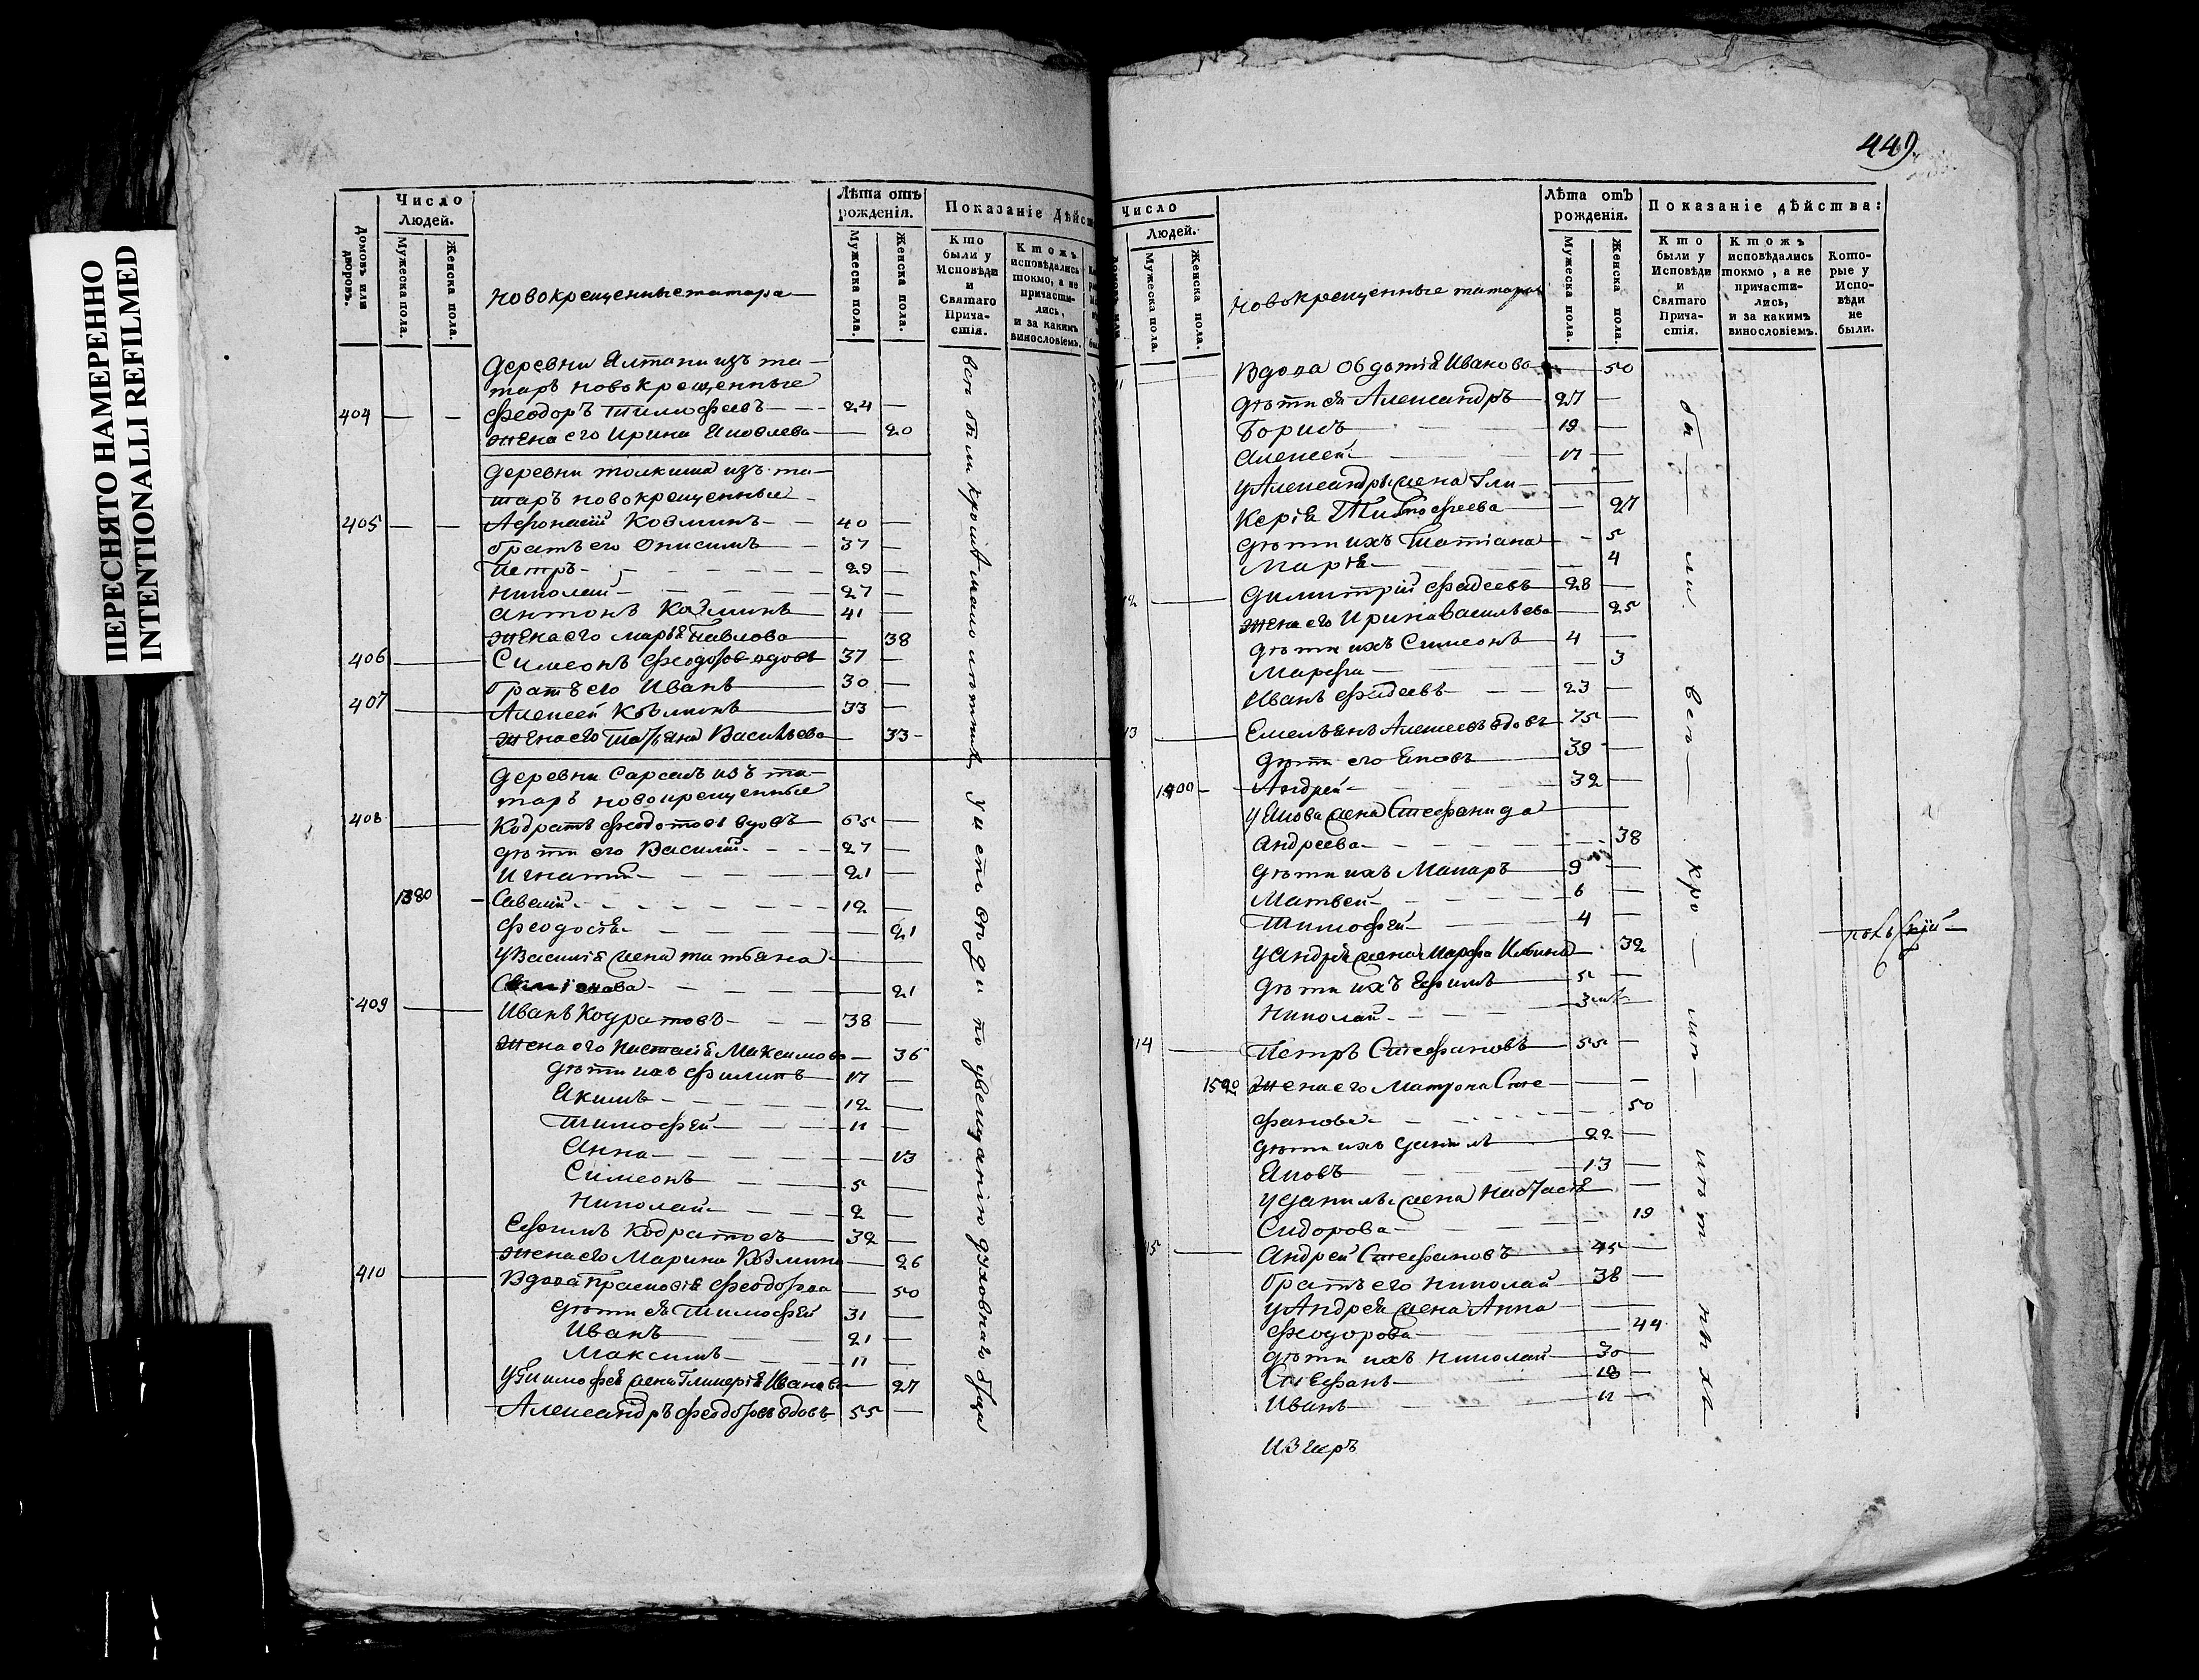 ПЕРЕСНЯТО НАМЕРЕННО
INTENTIONALLI REFILMED
Домовъ или дворовъ.
Число Людей.
Мужеска пола.
Женска пола.
Новокрещенные татара
Лѣта отъ рожденія.
Мужеска пола.
Женска пола.
Показаніе дѣйст
Кто были у Исповѣди и Святаго Прича-стія.
Ктожъ исповѣдались токмо, а не причасти-лись, и за какимъ винословіемъ.
деревни Елтани изъ та-
таръ новокрещенные
404 — — Феодоръ Тимофеевъ 24 —
жена его Ирина Яковлева — 20
деревни Толкиша изъ та-
таръ новокрещенные
405 — — Афонасій Козминъ 40 —
братъ его Онисимъ 37 —
Петръ 29 —
Николай 27 —
Антонъ Козминъ 41 —
жена его Марья Павлова — 38
406 Симеонъ Феодоровъ вдовъ 37 —
братъ его Иванъ 30 —
407 Алексей Козминъ 33 —
жена его Татьяна Васильева — 33
деревни Сарсазъ изъ та-
таръ новокрещенные
408 Кодратъ Федотовъ вдовъ 65 —
дѣти его Василій 27 —
Игнатій 21 —
1380 Савелій 12 —
Феодосья — 21
у Василія жена Татьяна
Симіонова — 21
409 Иванъ Кодратовъ 38 —
жена его Настасія Максимова — 36
дѣти ихъ Филипъ 17 —
Якимъ 12 —
Тимофѣй 11 —
Анна — 13
Симеонъ 5 —
Николай 2 —
Ефимъ Кодратовъ 32 —
жена его Марина Козмина — 26
410 Вдова Прасковія Феодорова — 50
дѣти ея Тимофѣй 31 —
Иванъ 21 —
Максимъ 11 —
у Тимофея жена Гликерія Иванова — 27
Александръ Феодоровъ вдовъ 55 —
всѣ были кромѣ мало лѣтнихъ у исповѣди по увещанію духовнаго отца
449.
Число
Людей.
Мужеска пола.
Женска пола.
Новокрещенные татары
Лѣта отъ рожденія.
Мужеска пола.
Женска пола.
Показаніе дѣйства:
Кто были у Исповѣди и Святаго Прича-стія.
Ктожъ исповѣдались токмо, а не причасти-лись, и за какимъ винословіемъ.
Кото-рые у Испо-вѣди не были.
11 Вдова Овдотія Иванова — 50
дѣти ея Александръ 27 —
Борисъ 19 —
Алексей 17 —
у Александра жена Гли-
керія Тимофеева — 27
дѣти ихъ Татіана — 5
Марія — 4
12 Димитрій Фадеевъ 28 —
жена его Ирина Васильева — 25
дѣти ихъ Симеонъ 4 —
Марфа — 3
Иванъ Фадеевъ 23 —
13 Емельянъ Алексеевъ вдовъ 75 —
дѣти его Яковъ 39 —
1400 Андрей 32 —
у Якова жена Стефанида
Андреева — 38
дѣти ихъ Макаръ 9 —
Матвей 6 —
Тимофей 4 —
у Андрея жена Марфа — 32
дѣти ихъ Ефимъ 5 —
Николай 3 —
14 Петръ Стефановъ 55 —
1520 жена его Матрона Сте-
фанова — 50
дѣти ихъ Данилъ 22 —
Яковъ 13 —
у Данилы жена Настасья
Сидорова — 19
15 Андрей Стефановъ 45 —
братъ его Николай 38 —
у Андрея жена Анна
Феодорова — 44
дѣти ихъ Николай 30 —
Стефанъ 18 —
Иванъ 11 —